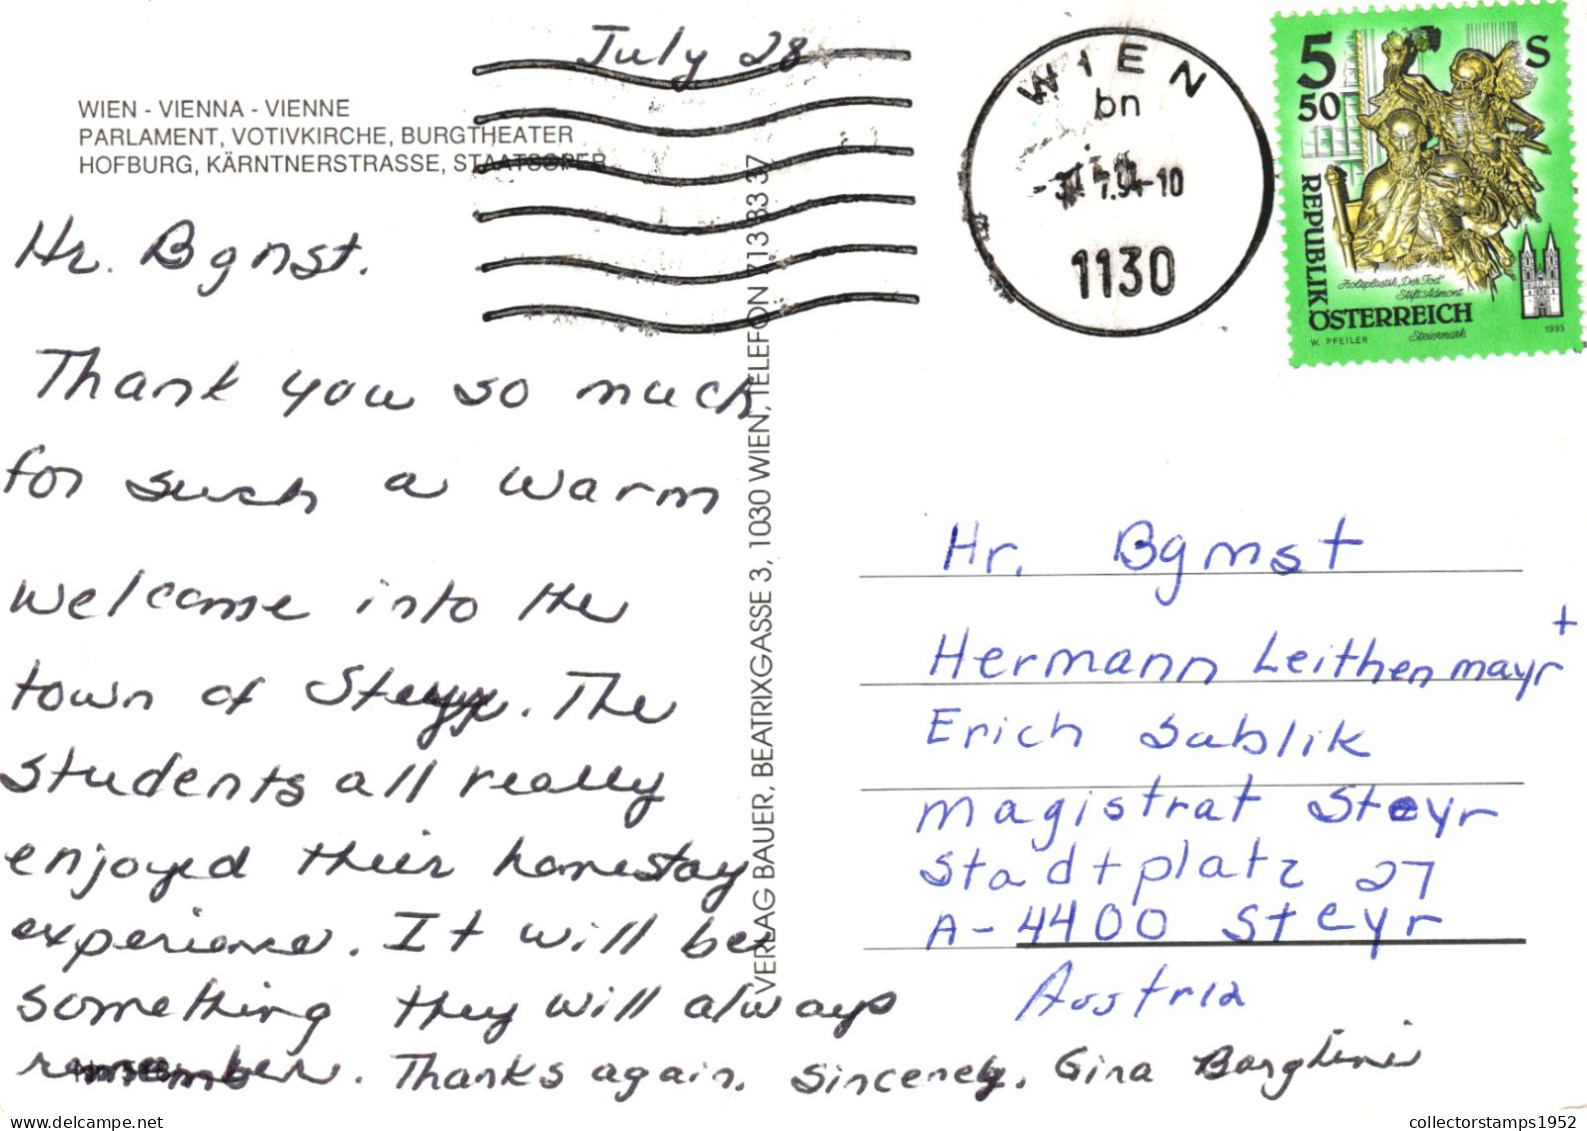 July 28
WIEN - VIENNA - VIENNE
PARLAMENT, VOTIVKIRCHE, BURGTHEATER
HOFBURG, KÄRNTNERSTRASSE, STAATSOPER
Hr. Bgmst.
Thank you so much
for such a warm
welcome into the
town of Steyr. The
students all really
enjoyed their homestay
experience. It will be
something they will always
remember. Thanks again. Sincerely, Gina
VERLAG BAUER, BEATRIXGASSE 3, 1030 WIEN, TELEFON 713 83 37
WIEN
bn
7.94-10
1130
5 50 S
REPUBLIK
ÖSTERREICH
Holzplastik "Der Tod"
Stift Admont
Steiermark
W. PFEILER
1993
Hr. Bgmst
Hermann Leithenmayr +
Erich Sablik
Magistrat Steyr
Stadtplatz 27
A-4400 Steyr
Austria
collectorstamps1952